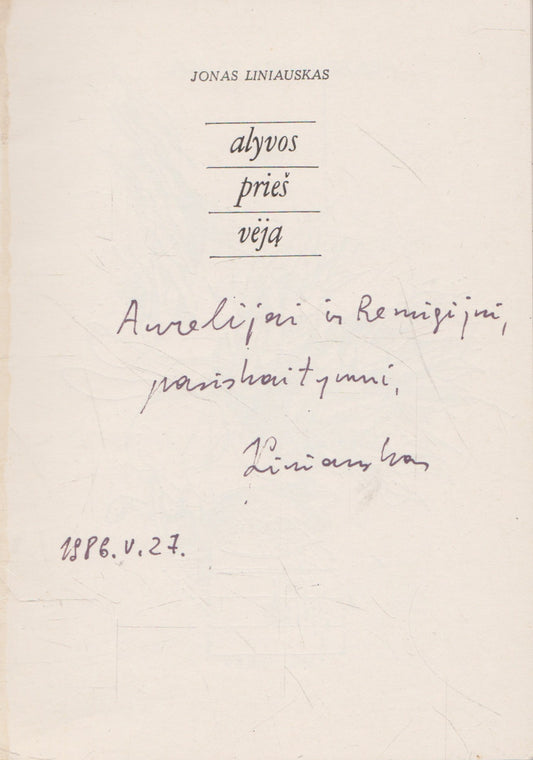 JONAS LINIAUSKAS
alyvos
prieš
vėją
Aurelijai ir Remigijui,
pasiskaitymui,
Liniauskas
1986.V.27.